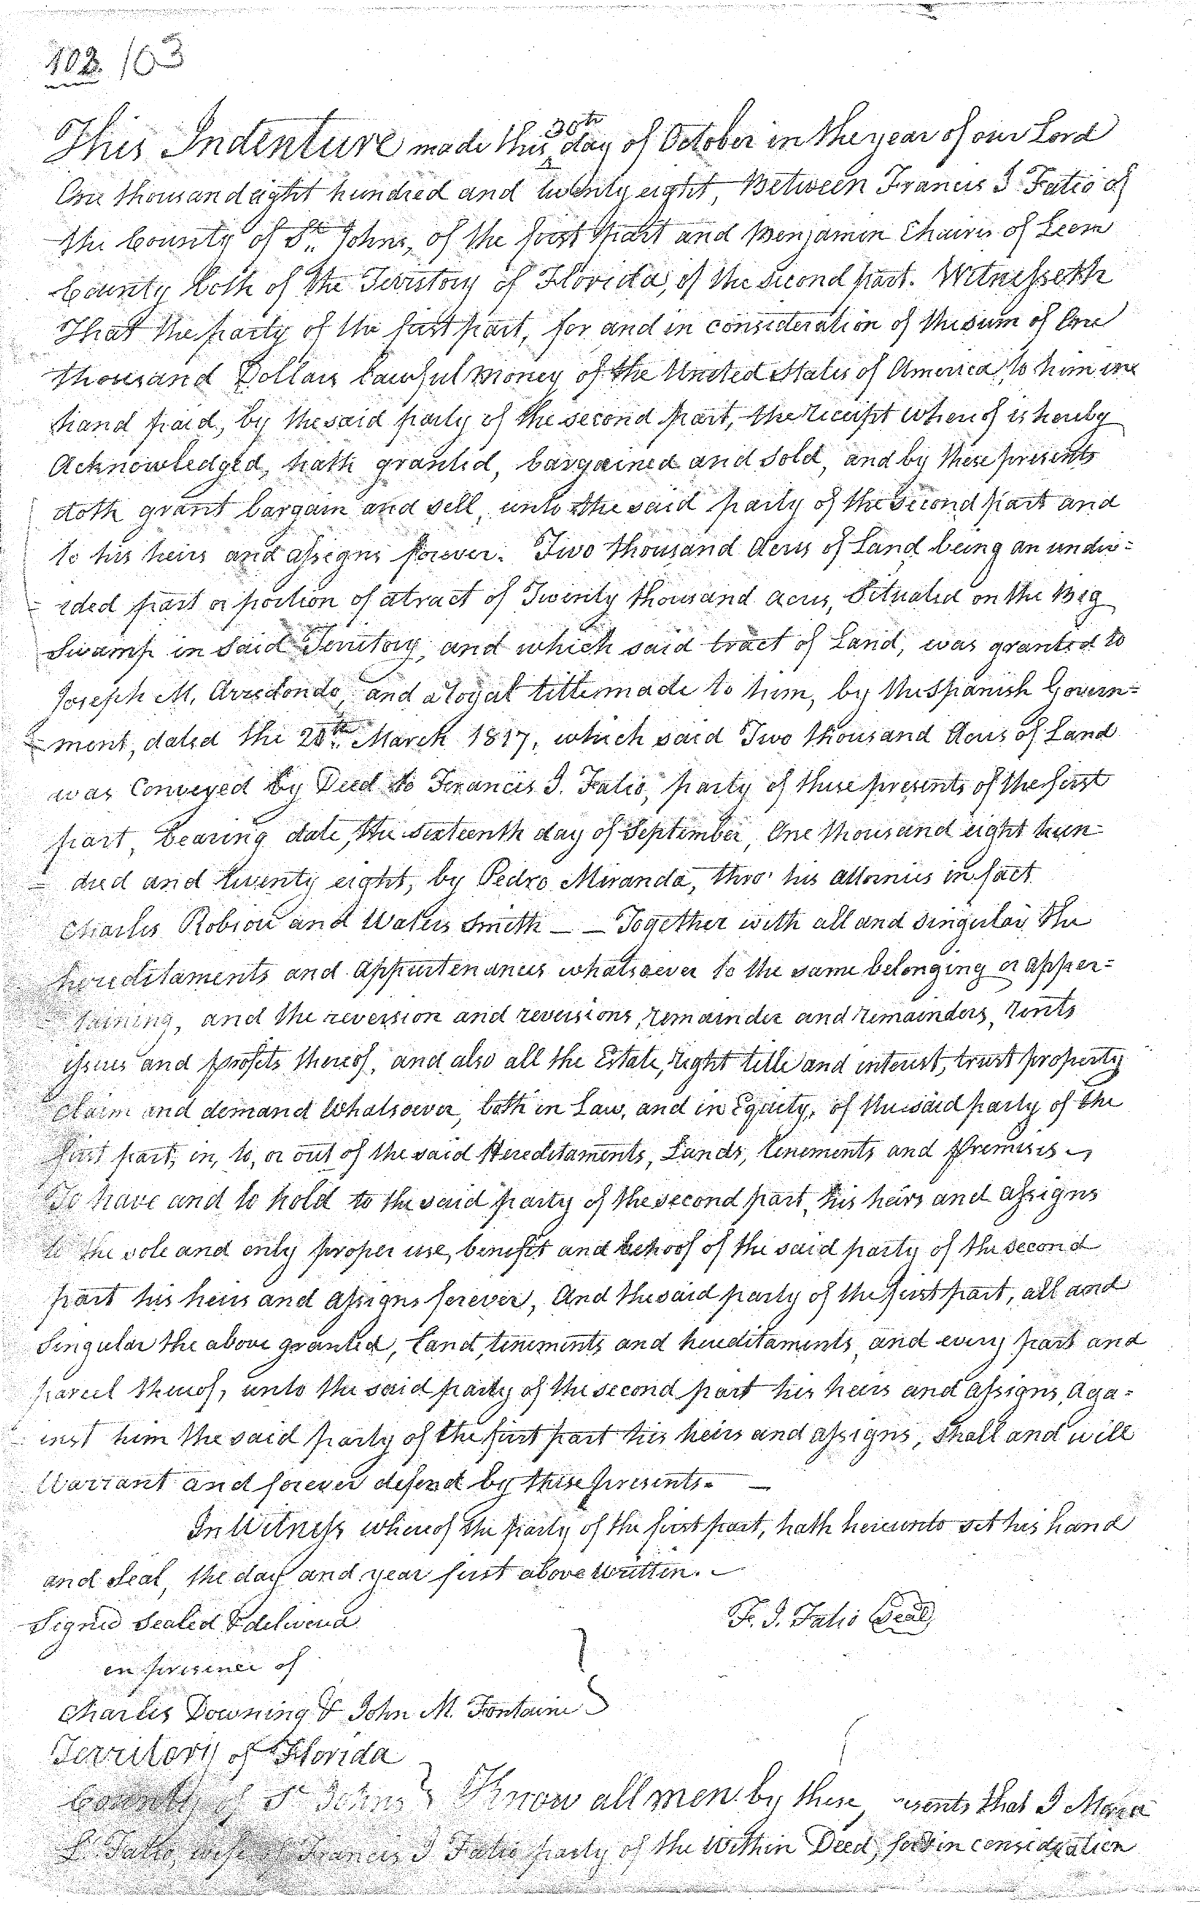 102. 103
This Indenture made this 30th day of October in the year of our Lord
One thousand eight hundred and twenty eight, Between Francis J Fatio of
the County of St. Johns, of the first part and Benjamin Chaires of Leon
County both of the Territory of Florida, of the second part. Witnesseth
That the party of the first part, for and in consideration of the sum of One
thousand Dollars lawful money of the United States of America, to him in
hand paid, by the said party of the second part, the receipt whereof is hereby
Acknowledged, hath granted, bargained and sold, and by these presents
doth grant bargain and sell, unto the said party of the second part and
to his heirs and assigns forever. Two thousand Acres of Land being an undiv=
=ided part or portion of a tract of Twenty thousand acres, Situated on the Big
Swamp in said Territory, and which said tract of Land, was granted to
Joseph M. Arredondo, and a loyal title made to him, by the Spanish Govern=
=ment, dated the 20th March 1817, which said Two thousand Acres of Land
was Conveyed by Deed to Francis J. Fatio, party of these presents of the first
part, bearing date, the sixteenth day of September, One thousand eight hun=
=dred and twenty eight, by Pedro Miranda, thro' his attornies in fact
Charles Robiou and Waters Smith — — Together with all and singular the
hereditaments and appurtenances whatsoever to the same belonging or apper=
taining, and the reversion and reversions, remainder and remainders, rents
issues and profits thereof, and also all the Estate, right title and interest, trust property
claim and demand whatsoever, both in Law, and in Equity, of the said party of the
first part, in, to, or out of the said Hereditaments, Lands, tenements and premises
To have and to hold to the said party of the second part, his heirs and assigns
to the sole and only proper use, benefit and behoof of the said party of the second
part his heirs and assigns forever, And the said party of the first part, all and
Singular the above granted, land, tenements and hereditaments, and every part and
parcel thereof, unto the said party of the second part his heirs and assigns, aga=
inst him the said party of the first part his heirs and assigns, shall and will
Warrant and forever defend by these presents. —
In Witness whereof the party of the first part, hath hereunto set his hand
and Seal, the day and year first above written. —
Signed Sealed & delivered F. J. Fatio Seal
in presence of
Charles Downing & John M. Fontaine
Territory of Florida
County of St Johns Know all men by these resents that I Maria
L. Fatio, wife of Francis J Fatio party of the within Deed, for & in consideration